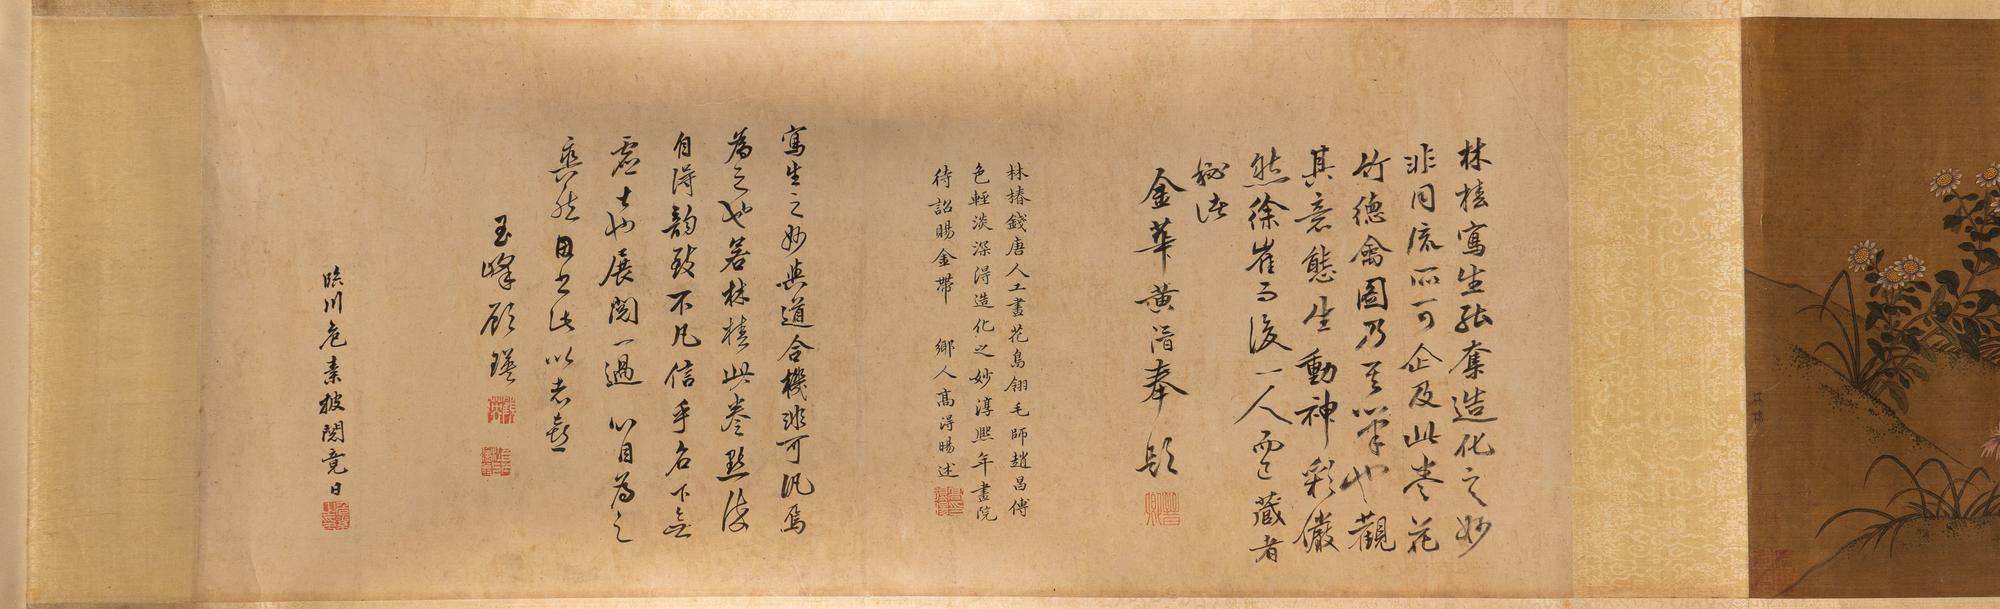 林椿寫生能奪造化之妙
非同流所可企及此卷花
竹德禽圖乃其筆也觀
其意態生動神彩儼
然徐崔而後一人而已藏者
秘諸
金華黃溍奉題
林椿錢唐人工畫花鳥翎毛師趙昌傅
色輕淡深得造化之妙淳熙年畫院
待詔賜金帶 鄉人高得暘述
寫生之妙與道合機非可汎焉
為之也若林椿此卷點染
自得韵致不凡信乎名下無
虛士也展閱一過心目為之
爽然因書此以志喜
玉峰顧瑛
臨川危素披閱竟日
林椿